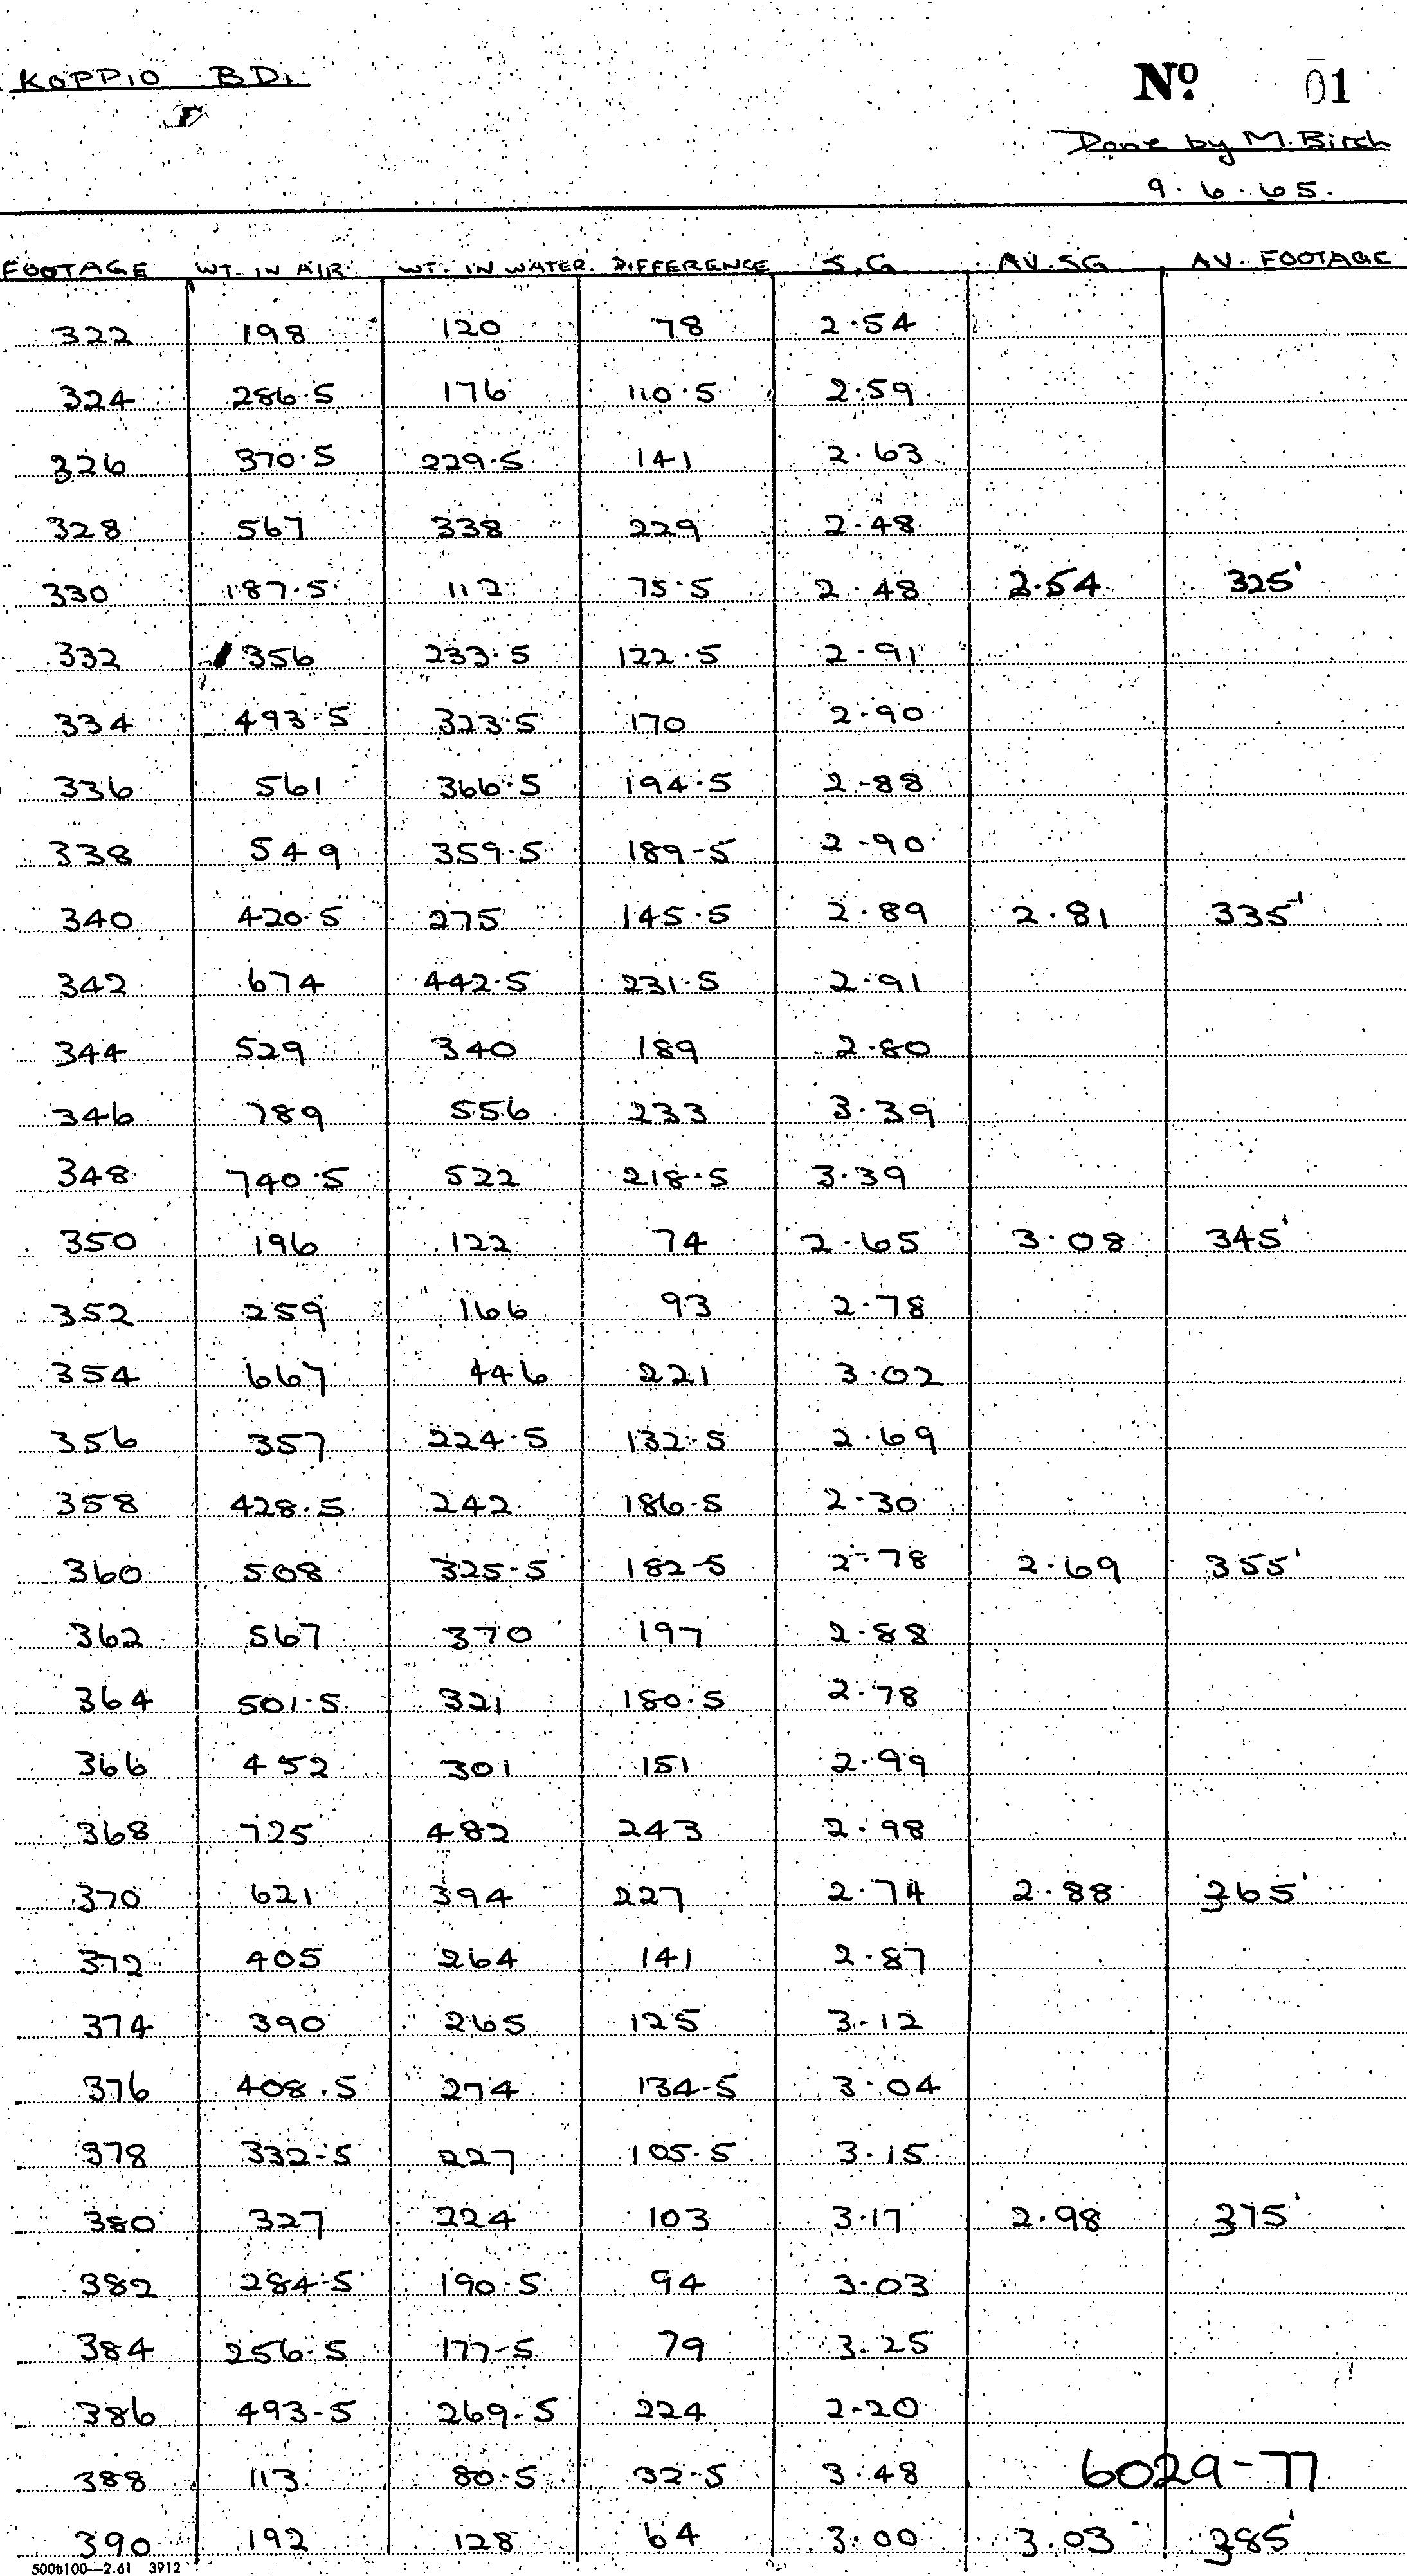 KOPPIO BD1
No. 01
Done by M. Birch
9.6.65.
FOOTAGE WT. IN AIR WT. IN WATER. DIFFERENCE S.G AV. SG AV. FOOTAGE
322 198 120 78 2.54
324 286.5 176 110.5 2.59
326 370.5 229.5 141 2.63
328 567 338 229 2.48
330 187.5 112 75.5 2.48 2.54 325'
332 356 233.5 122.5 2.91
334 493.5 323.5 170 2.90
336 561 366.5 194.5 2.88
338 549 359.5 189.5 2.90
340 420.5 275 145.5 2.89 2.81 335'
342 674 442.5 231.5 2.91
344 529 340 189 2.80
346 789 556 233 3.39
348 740.5 522 218.5 3.39
350 196 122 74 2.65 3.08 345'
352 259 166 93 2.78
354 667 446 221 3.02
356 357 224.5 132.5 2.69
358 428.5 242 186.5 2.30
360 508 325.5 182.5 2.78 2.69 355'
362 567 370 197 2.88
364 501.5 321 180.5 2.78
366 452 301 151 2.99
368 725 482 243 2.98
370 621 394 227 2.74 2.88 365'
372 405 264 141 2.87
374 390 265 125 3.12
376 408.5 274 134.5 3.04
378 332.5 227 105.5 3.15
380 327 224 103 3.17 2.98 375'
382 284.5 190.5 94 3.03
384 256.5 177.5 79 3.25
386 493.5 269.5 224 2.20
388 113 80.5 32.5 3.48 6029-77
390 192 128 64 3.00 3.03 385'
500b100—2.61 3912